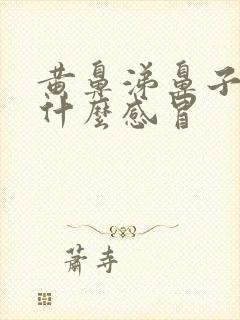 黄鼻涕鼻子
什麼感冒
蕭寺